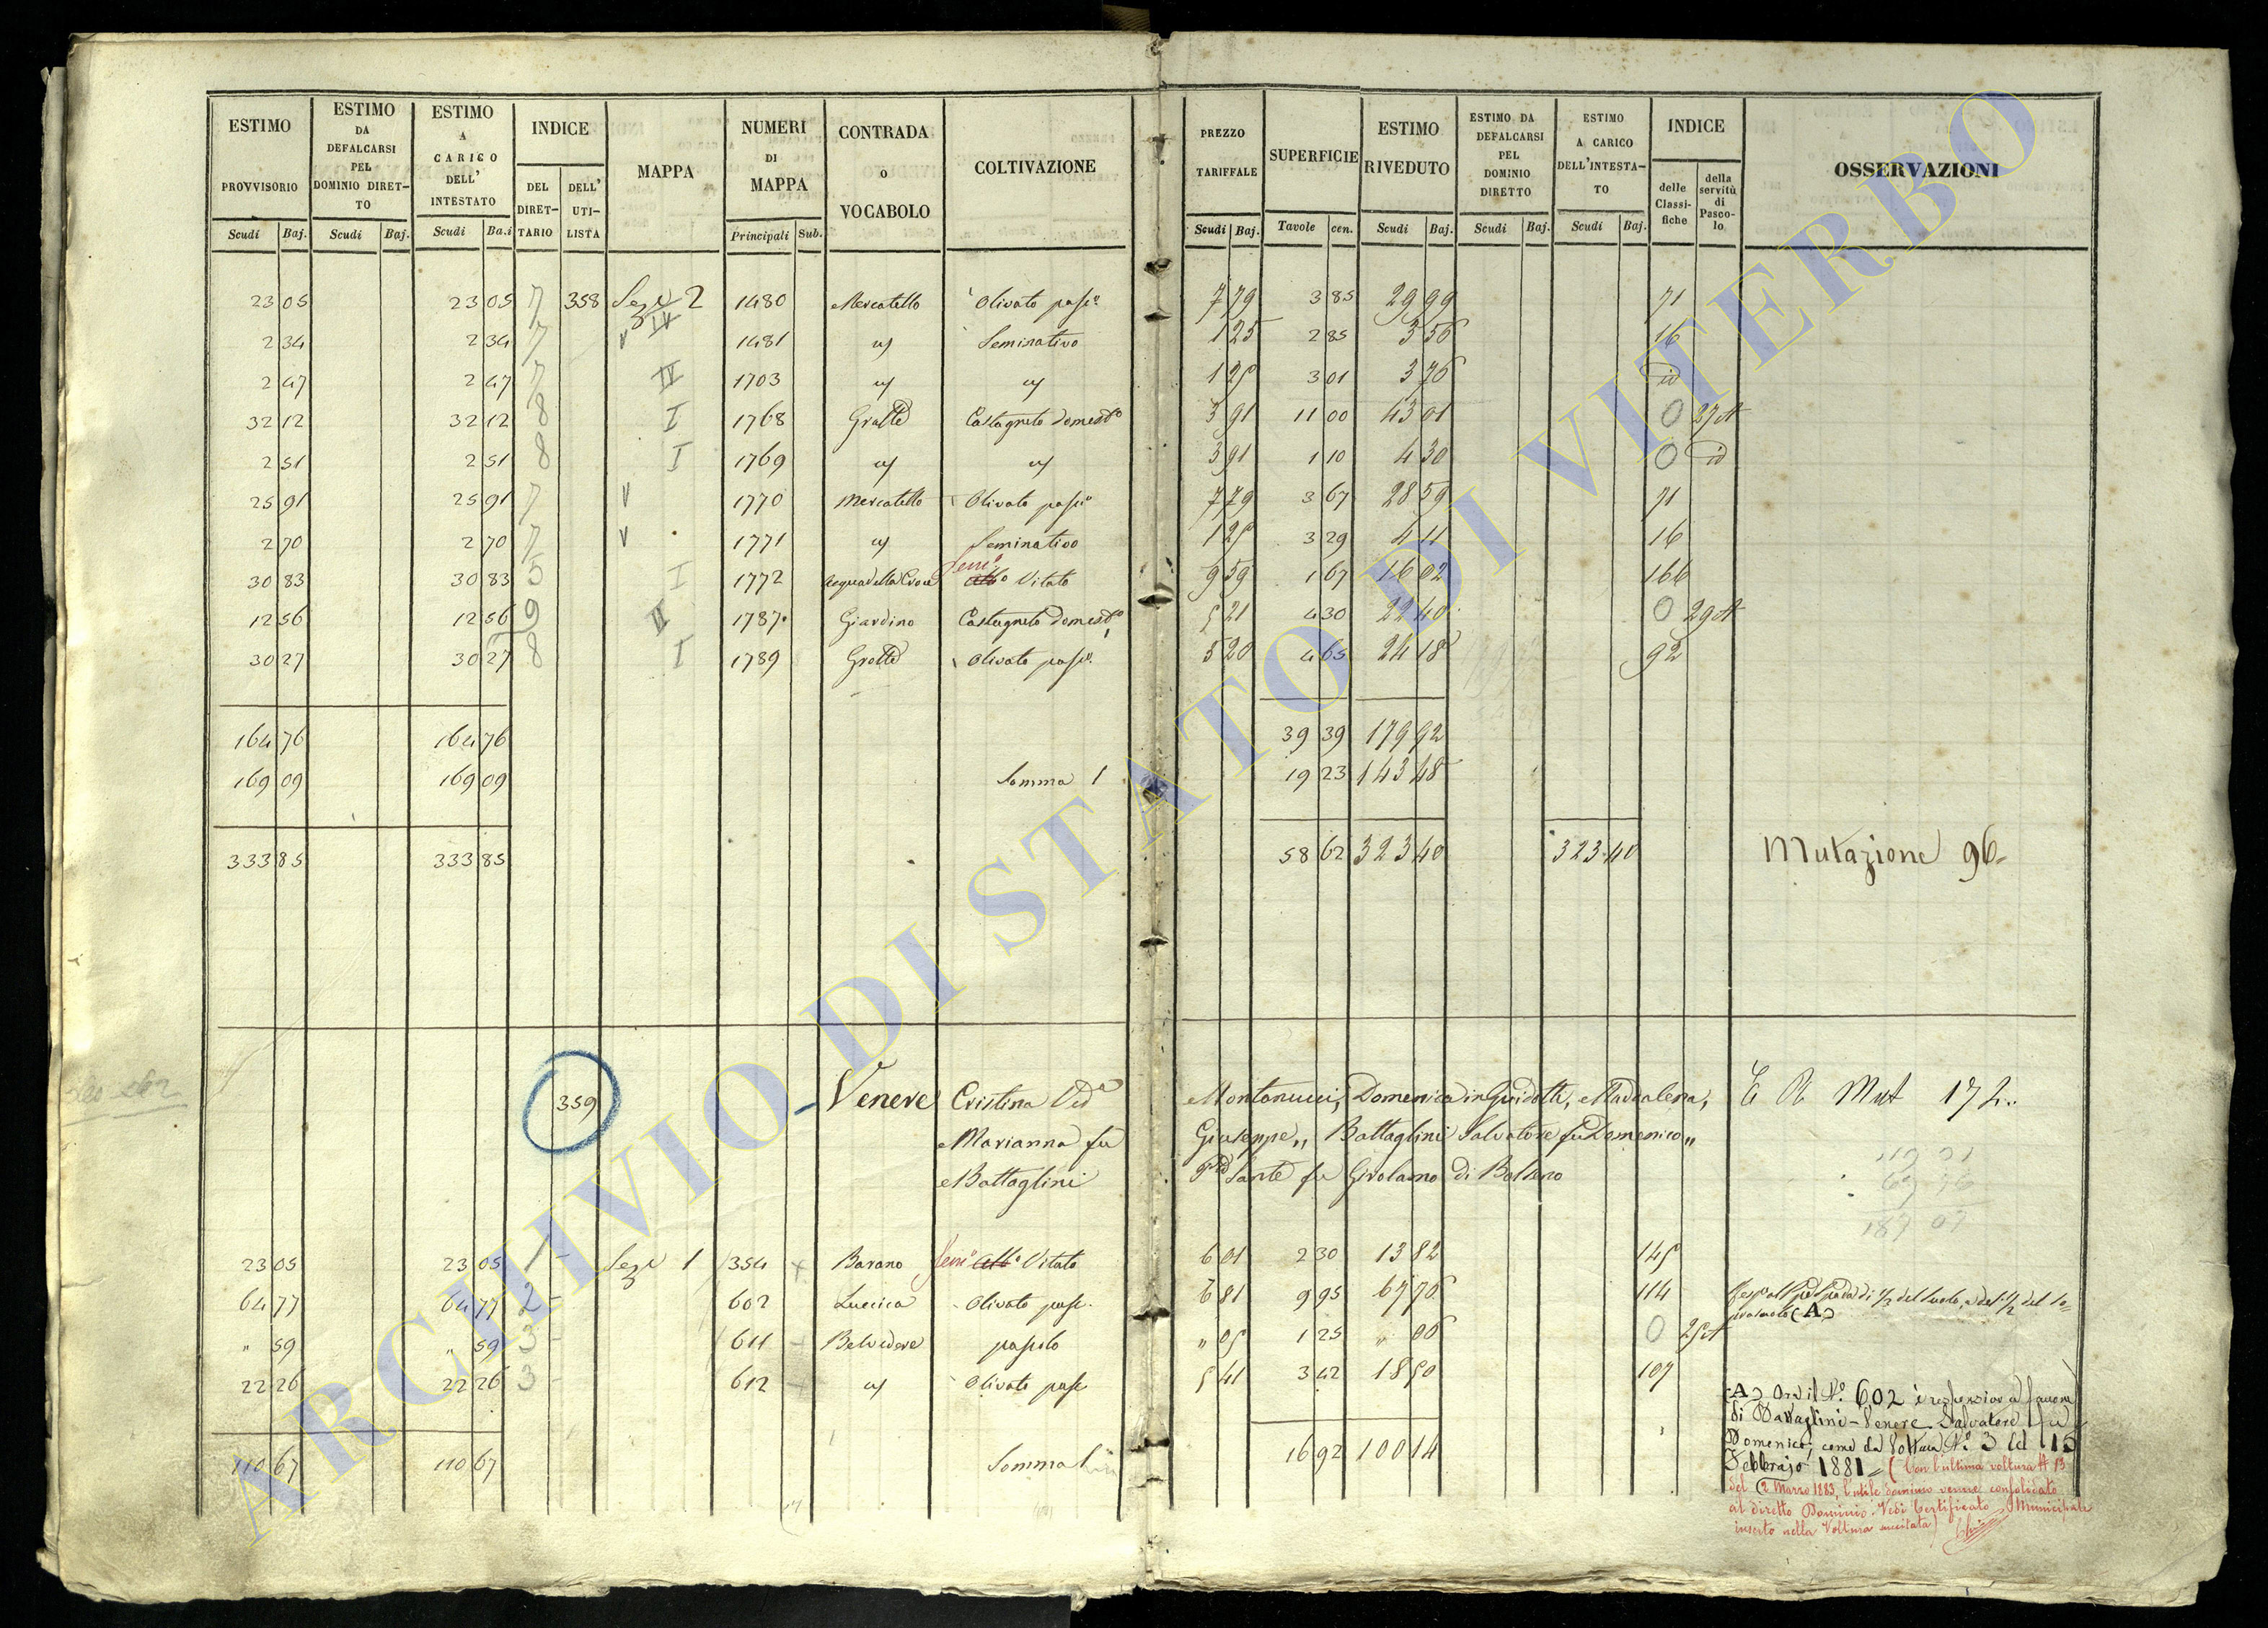 ESTIMO PROVVISORIO | ESTIMO DA DEFALCARSI PEL DOMINIO DIRET-TO | ESTIMO A CARICO DELL' INTESTATO | INDICE | MAPPA | NUMERI DI MAPPA | CONTRADA O VOCABOLO | COLTIVAZIONE | PREZZO TARIFFALE | SUPERFICIE | ESTIMO RIVEDUTO | ESTIMO DA DEFALCARSI PEL DOMINIO DIRETTO | ESTIMO A CARICO DELL'INTESTA-TO | INDICE | OSSERVAZIONI
DEL DIRET-TARIO | DELL' UTI-LISTA | delle Classi-fiche | della servitù di Pasco-lo
Scudi | Baj. | Scudi | Baj. | Scudi | Ba.i | Principali | Sub. | Scudi | Baj. | Tavole | cen. | Scudi | Baj. | Scudi | Baj. | Scudi | Baj.
23 05 | 23 05 | 7 | 358 | Sez.e 2 IV | 1480 | Mercatello | Olivato pas.o | 7 79 | 3 85 | 29 99 | 71
2 34 | 2 34 | 7 | V | 1481 | id | Seminativo | 1 25 | 2 85 | 3 56 | 16
2 47 | 2 47 | 7 | IV | 1703 | id | id | 1 25 | 3 01 | 3 76 | id
32 12 | 32 12 | 8 | I | 1768 | Grotte | Castagneto domest.o | 3 91 | 11 00 | 43 01 | 0 | 27 A
2 51 | 2 51 | 8 | I | 1769 | id | id | 3 91 | 1 10 | 4 30 | 0 | id
25 91 | 25 91 | 7 | V | 1770 | Mercatello | Olivato pas.o | 7 79 | 3 67 | 28 59 | 71
2 70 | 2 70 | 7 | V | 1771 | id | Seminativo | 1 25 | 3 29 | 4 11 | 16
30 83 | 30 83 | 5 | I | 1772 | Acqua della Croce | Sem.o Alb.o Vitato | 9 59 | 1 67 | 16 02 | 166
12 56 | 12 56 | 9 | II | 1787 | Giardino | Castagneto domest.o | 5 21 | 4 30 | 22 40 | 0 | 29 A
30 27 | 30 27 | 8 | I | 1789 | Grotte | Olivato pas.o | 5 20 | 4 65 | 24 18 | 92
164 76 | 164 76 | 39 39 | 179 92
169 09 | 169 09 | Somma 1 | 19 23 | 143 48
333 85 | 333 85 | 58 62 | 323 40 | 323 40 | Mutazione 96
359 | Venere Cristina Ved.a Montanucci, Domenica in Guidotti, Maddalena, | Mut 172
Marianna fu Giuseppe,, Battaglini Salvatore fu Domenico,,
Battaglini Sante fu Girolamo di Bolseno
187 07
23 05 | 23 05 | 1 | Sez.e 1 | 354 | Barano | Sem.o Alb.o Vitato | 6 01 | 2 30 | 13 82 | 145
64 77 | 64 77 | 2 | 602 | Luccica | Olivato pas. | 6 81 | 9 95 | 67 76 | 114 | di 1/2 del suolo, (A)
" 59 | " 59 | 3 | 611 | Belvedere | pascolo | " 05 | 1 25 | " 06 | 0 | 25 A
22 26 | 22 26 | 3 | 612 | id | Olivato pas. | 5 41 | 3 42 | 18 50 | 107
(A) Ora il N.o 602 è responsivo a favore
di Battaglini-Venere Salvatore fu
Domenico, come da Voltura N.o 3 del 15
110 67 | 110 67 | Somma | 16 92 | 100 14 | Febbrajo 1881 = (Con l'ultima voltura N 13
del 2 Marzo 1883, l'utile dominio venne consolidato
al diretto Dominio. Vedi Certificato Municipale
inserto nella Voltura succitata)
ARCHIVIO DI STATO DI VITERBO